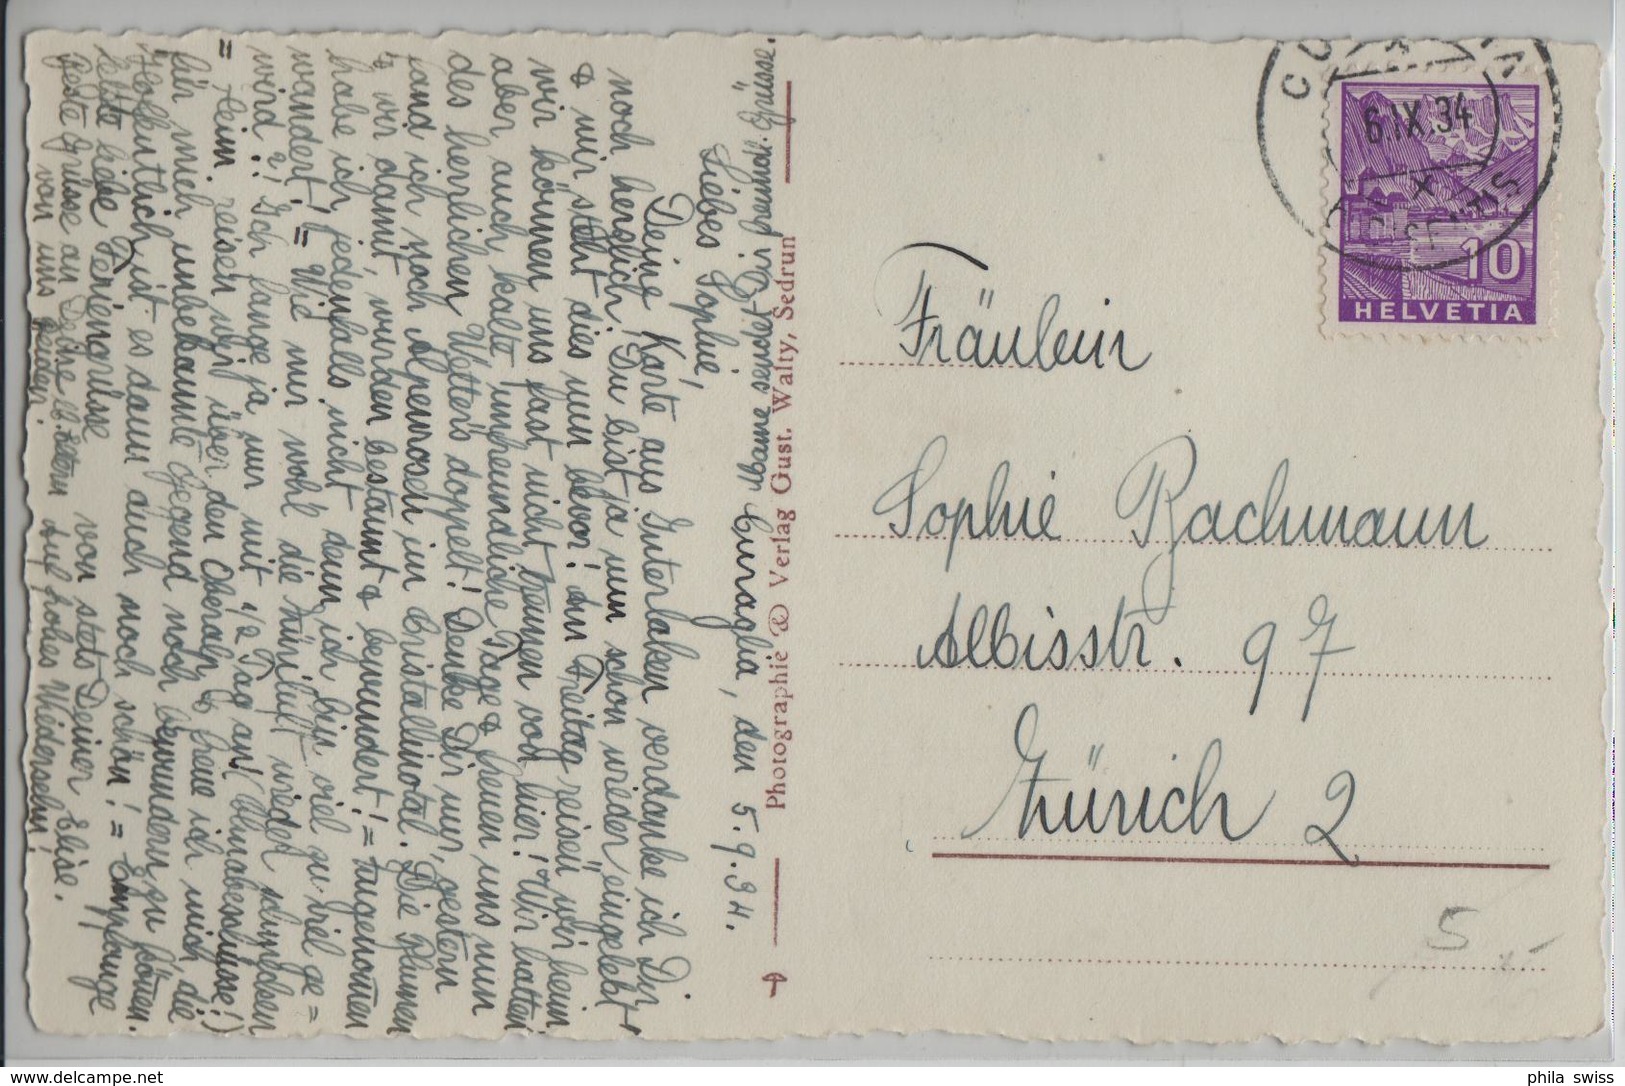 Curaglia, den 5.9.34.
Liebes Sophie,
Deine Karte aus Interlaken verdanke ich Dir
noch herzlich! Du bist ja nun schon wieder eingelebt
& mir steht dies nun bevor! Am Freitag reisen wir heim
wir können uns fast nicht trennen von hier! Wir hatten
aber auch kalte unfreundliche Tage & freuen uns nun
des herrlichen Wetters doppelt! Denke Dir nur, gestern
fand ich noch Alpenrosen im Cristallinatal. Die Blumen
& wir damit, wurden bestaunt & bewundert! = Zugenommen
habe ich jedenfalls nicht denn ich bin viel zu viel ge=
wandert! = Wie mir wohl die Zürriluft wieder schmecken
wird?! Ich fange ja nur mit ½ Tag an!
= Heim reisen wir über den Oberalp & freue ich mich die
für mich unbekannte Gegend noch bewundern zu können.
Hoffentlich ist es dann auch noch schön! = Empfange
liebe Feriengrüsse von stets Deiner Elise.
Beste Grüsse an Deine lb. Eltern Auf frohes Wiedersehn!
von uns beiden!
Mame sendet Dir freundl. Grüsse.
Photographie & Verlag Gust. Walty, Sedrun
6.IX.34
10
HELVETIA
Fräulein
Sophie Bachmann
Albisstr. 97
Zürich 2
5.-
phila swiss